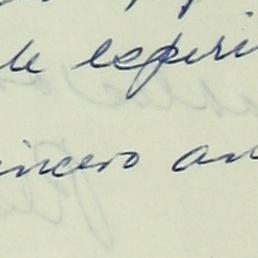 de espiri
incero am